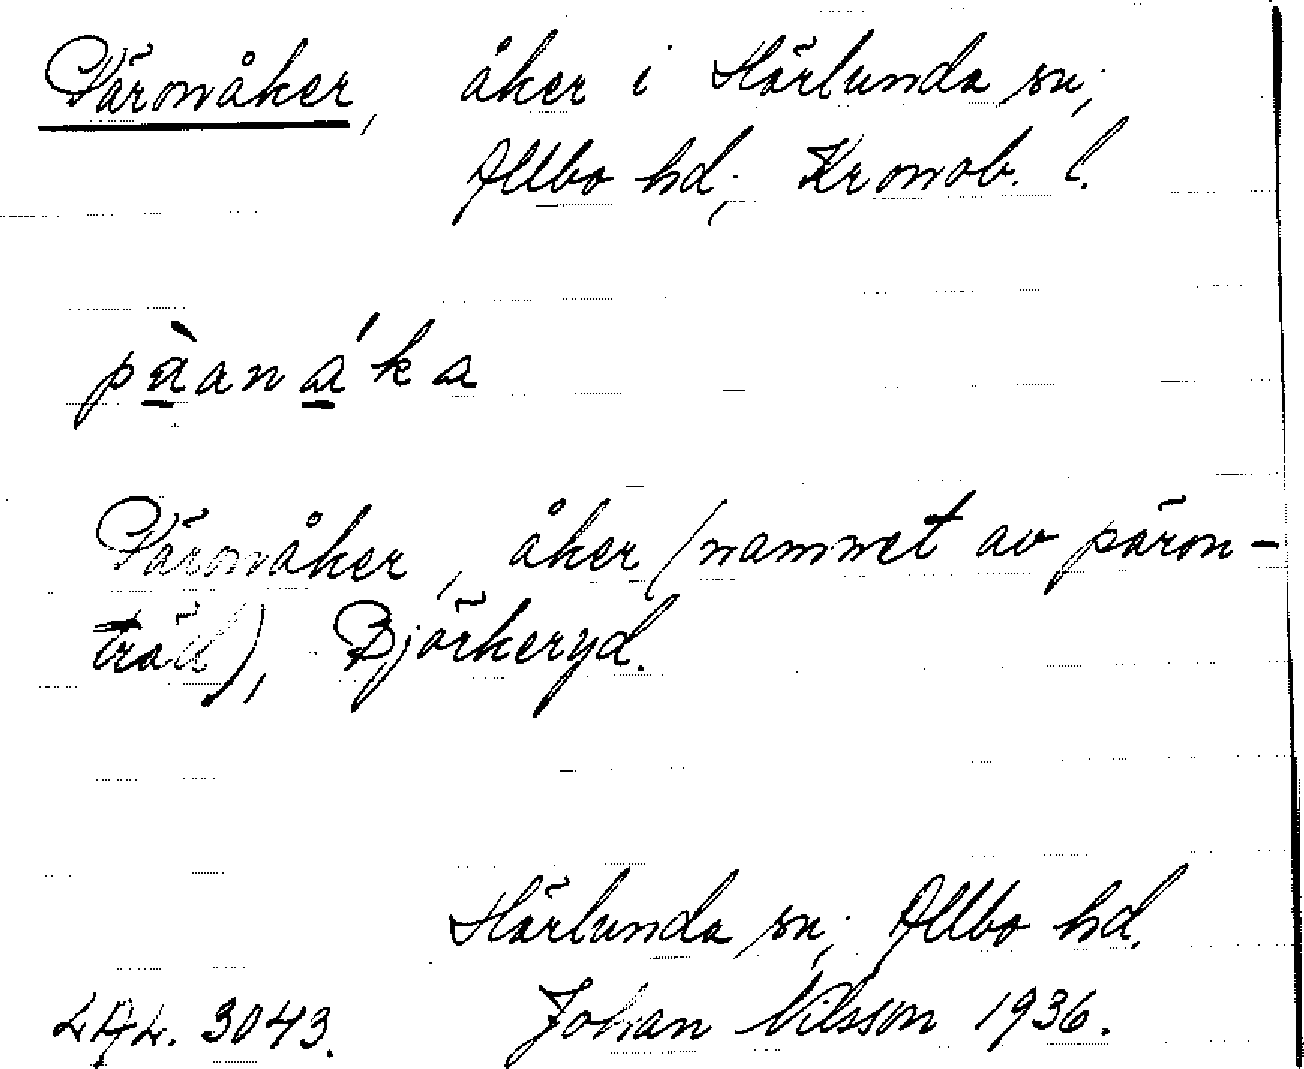 Päronåker, åker i Härlunda sn;
Allbo hd; Kronob. l.
pàanáka
Päronåker, åker (namnet av päron-
träd), Björkeryd.
Härlunda sn; Allbo hd.
LAL. 3043. Johan Nilsson 1936.